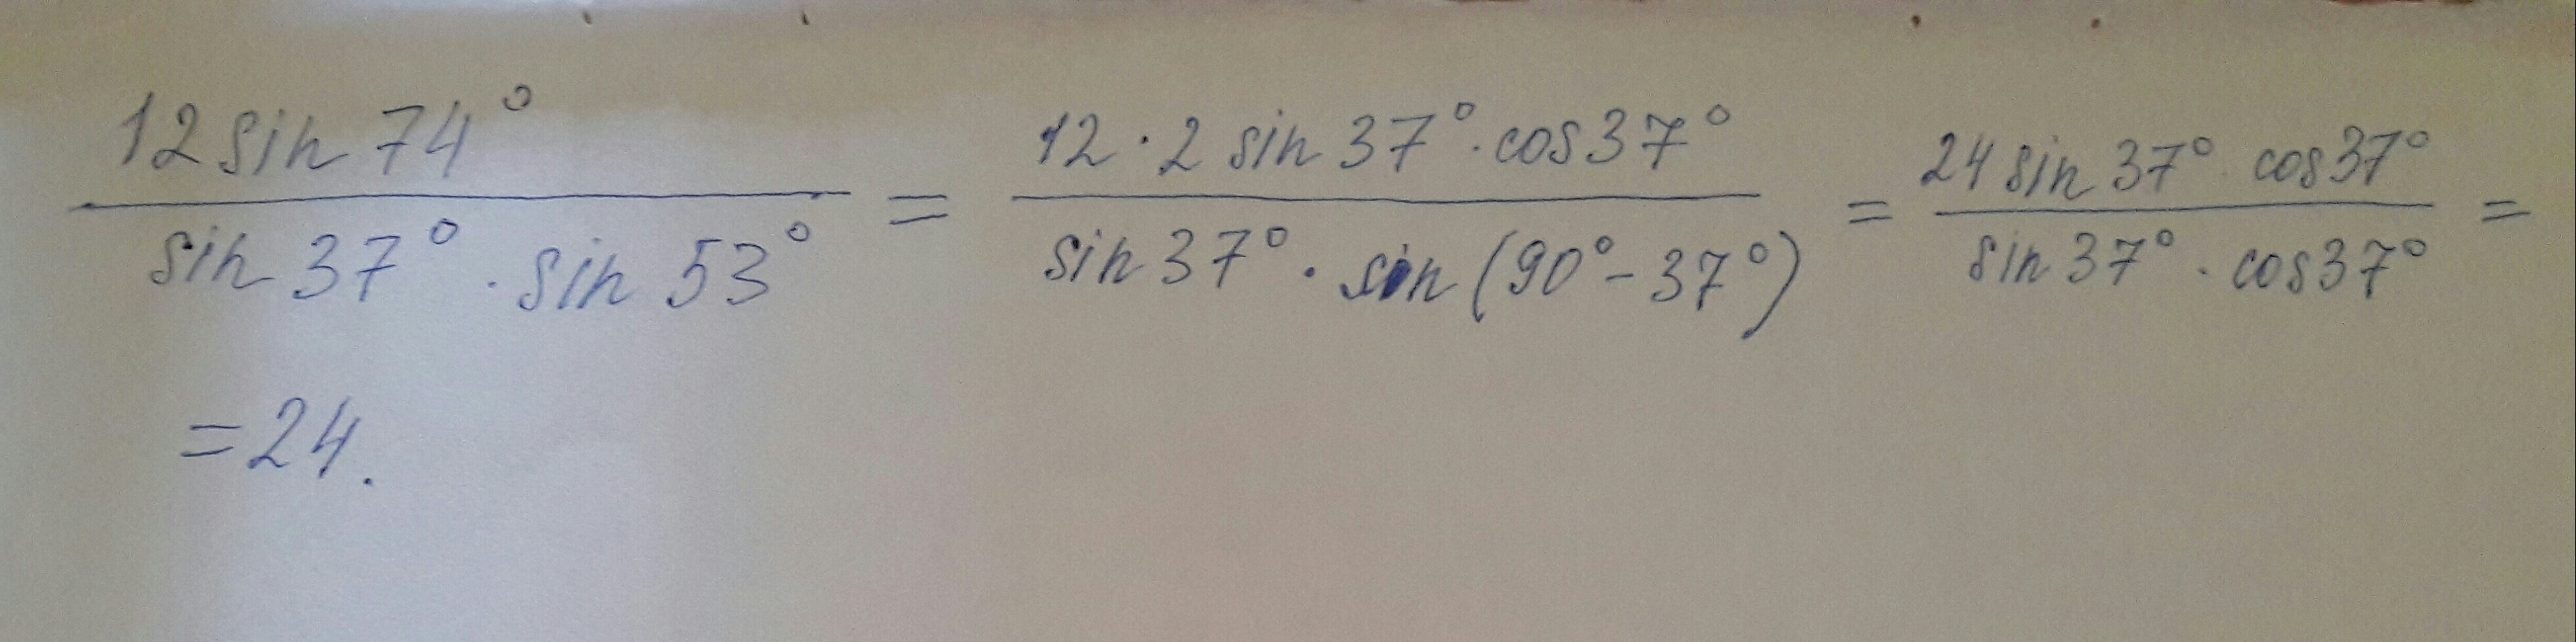 12 sin 74° / sin 37° · sin 53° = 12 · 2 sin 37° · cos 37° / sin 37° · sin (90° - 37°) = 24 sin 37° cos 37° / sin 37° · cos 37° =
= 24.